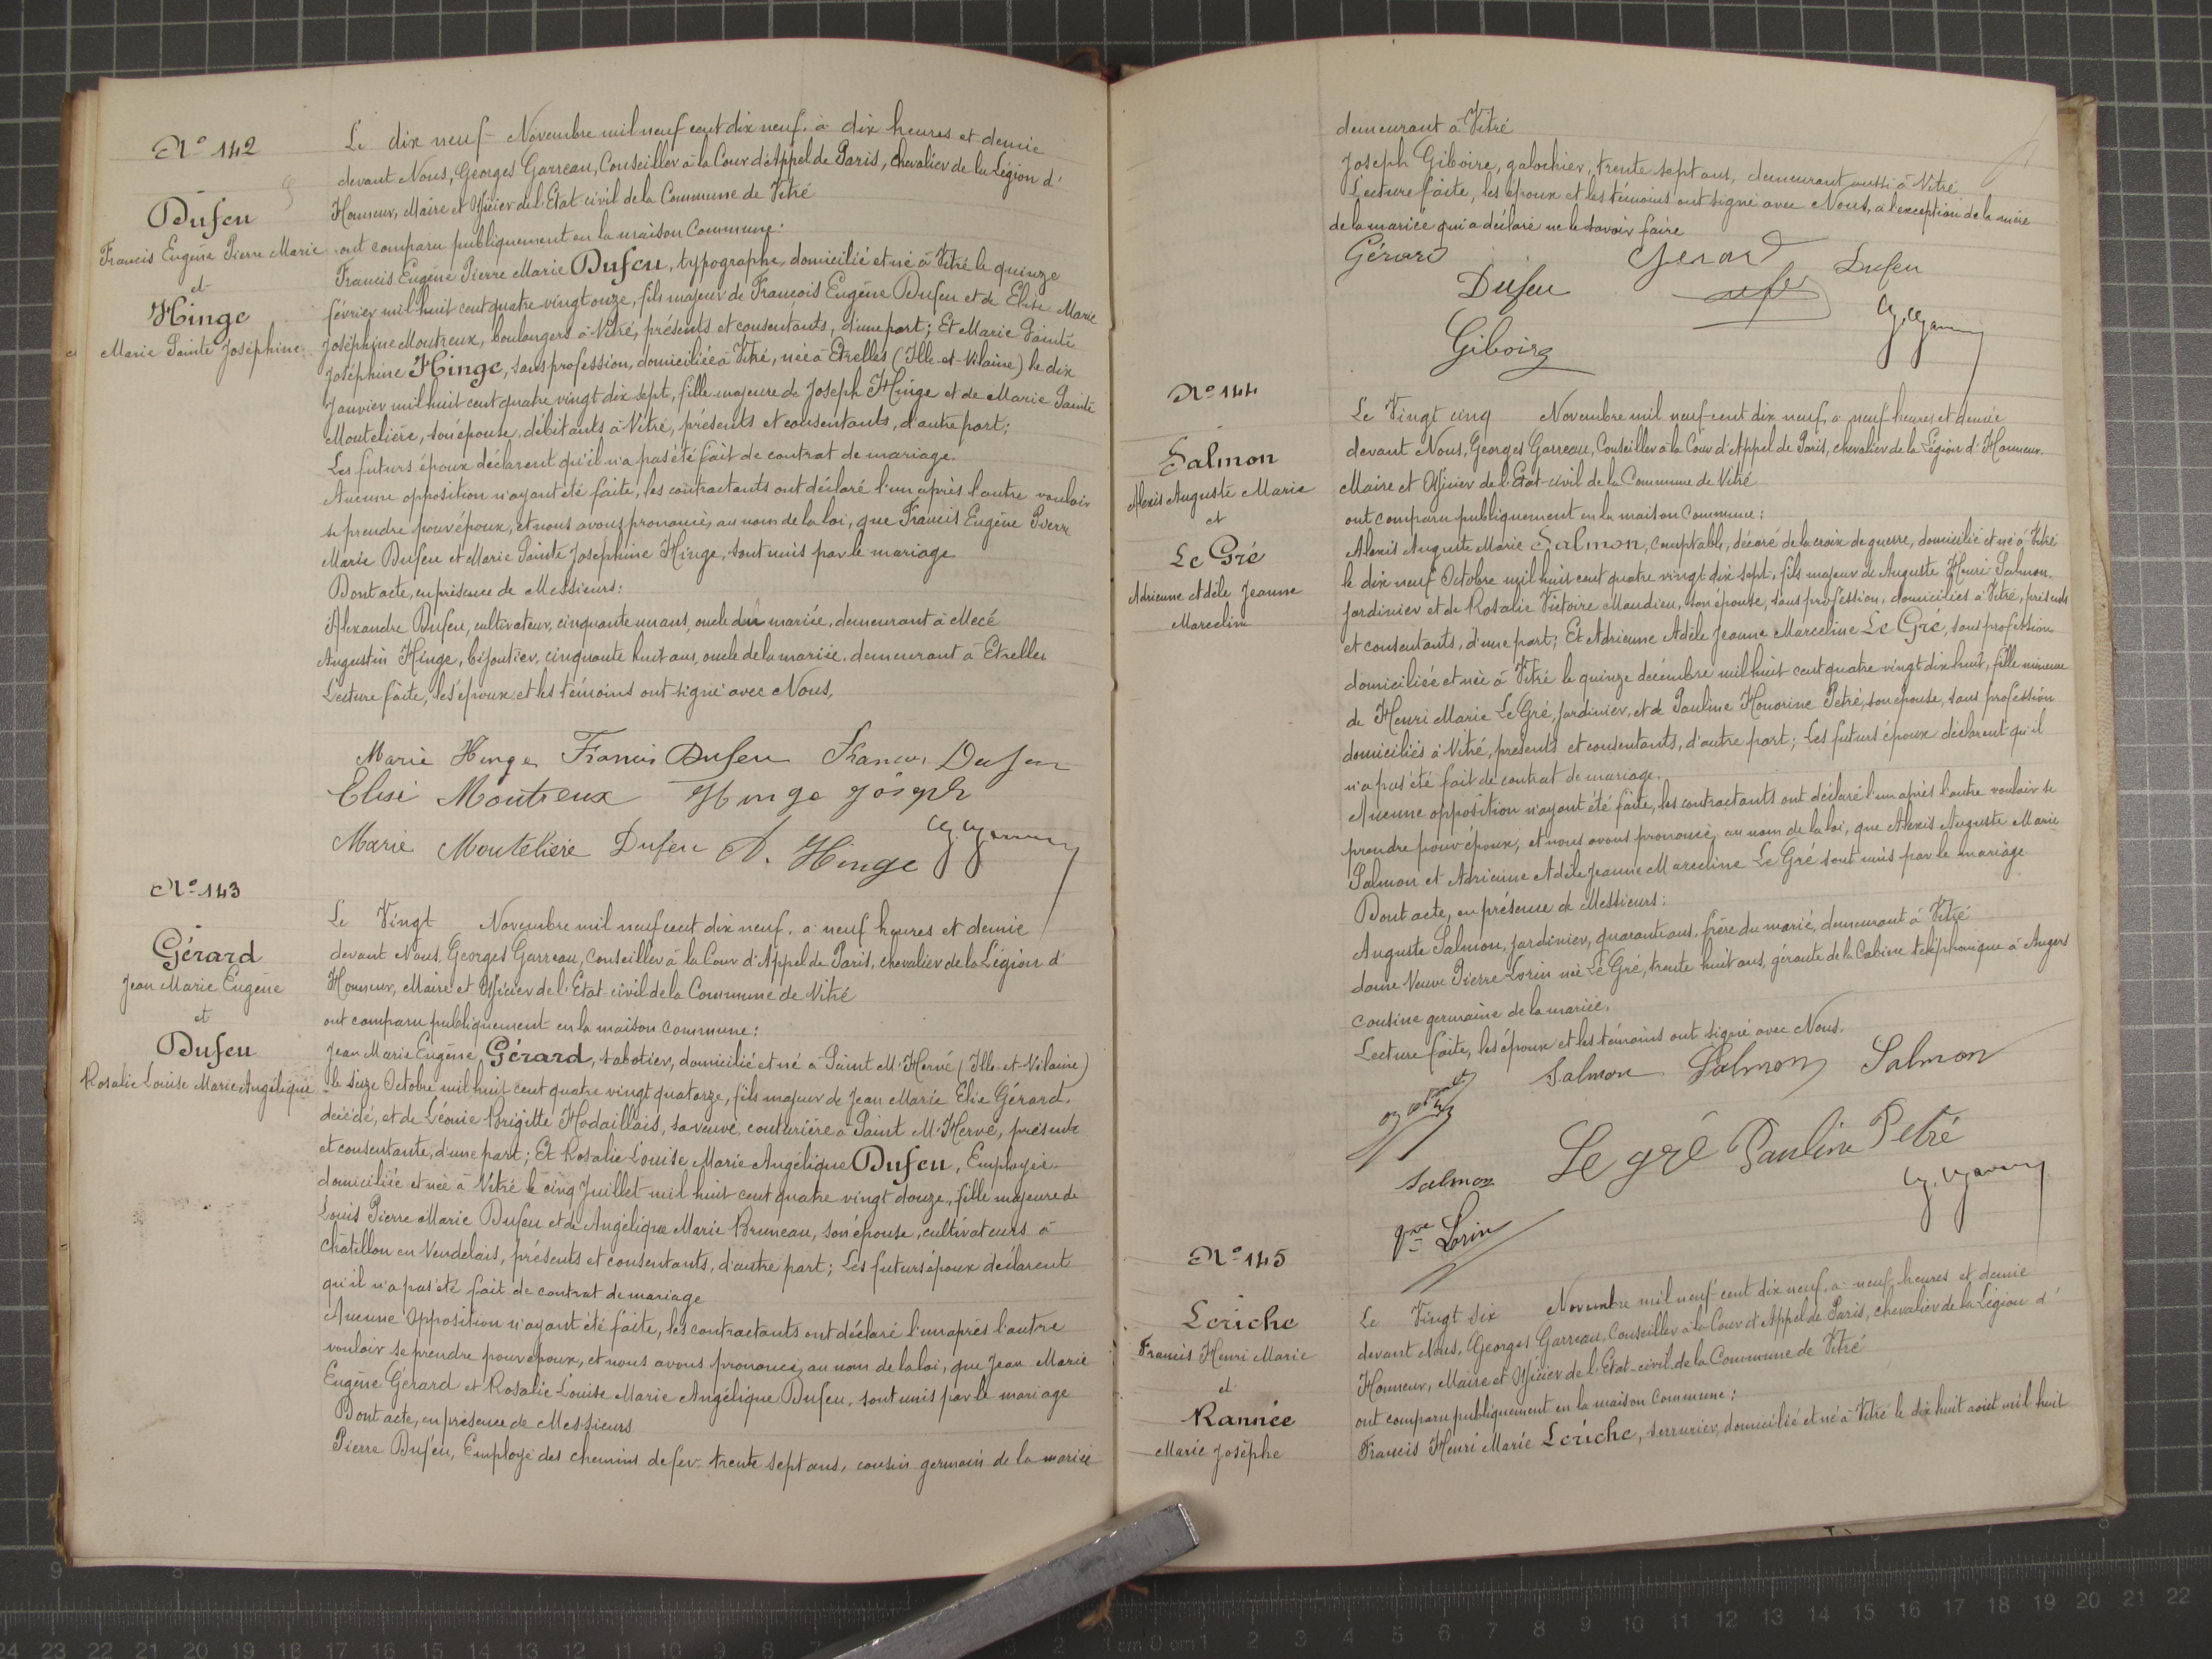 N° 142
Dufeu
Francis Eugène Pierre Marie
et
Hinge
Marie Sainte Joséphine
Le dix neuf Novembre mil neuf cent dix neuf, à dix heures et demie
devant Nous, Georges Garreau, Conseiller à la Cour d'Appel de Paris, chevalier de la Légion d'
Honneur, Maire et Officier de l'Etat-civil de la Commune de Vitré
ont comparu publiquement en la maison Commune:
Francis Eugène Pierre Marie Dufeu, typographe, domicilié et né à Vitré le quinze
février mil huit cent quatre vingt onze, fils majeur de François Eugène Dufeu et de Elise Marie
Joséphine Moutreux, boulangers à Vitré, présents et consentants, d'une part; Et Marie Sainte
Joséphine Hinge, sans profession, domiciliée à Vitré, née à Etrelles (Ille-et-Vilaine) le dix
Janvier mil huit cent quatre vingt dix sept, fille majeure de Joseph Hinge et de Marie Sainte
Moutelière, son épouse, débitants à Vitré, présents et consentants, d'autre part;
Les futurs époux déclarent qu'il n'a pas été fait de contrat de mariage.
Aucune opposition n'ayant été faite, les contractants ont déclaré l'un après l'autre vouloir
se prendre pour époux, et nous avons prononcé, au nom de la loi, que Francis Eugène Pierre
Marie Dufeu et Marie Sainte Joséphine Hinge, sont unis par le mariage
Dont acte, en présence de Messieurs:
Alexandre Dufeu, cultivateur, cinquante un ans, oncle du mariée, demeurant à Mecé
Augustin Hinge, bijoutier, cinquante huit ans, oncle de la mariée, demeurant à Etrelles
Lecture faite, les époux et les témoins ont signé avec Nous,
Marie Hinge Francis Dufeu Francois Dufeu
Elise Moutreux Hinge Joseph
Marie Moutelière Dufeu A. Hinge
N° 143
Gérard
Jean Marie Eugène
et
Dufeu
Rosalie Louise Marie Angélique
Le Vingt Novembre mil neuf cent dix neuf, à neuf heures et demie
devant Nous, Georges Garreau, Conseiller à la Cour d'Appel de Paris, chevalier de la Légion d'
Honneur, Maire et Officier de l'Etat-civil de la Commune de Vitré
ont comparu publiquement en la maison commune:
Jean Marie Eugène, Gérard, sabotier, domicilié et né à Saint M'Hervé (Ille-et-Vilaine)
le seize Octobre mil huit cent quatre vingt quatorze, fils majeur de Jean Marie Elie Gérard,
décédé, et de Léonie Brigitte Hodaillais, sa veuve, couturière à Saint M'Hervé, présente
et consentante, d'une part; Et Rosalie Louise Marie Angélique Dufeu, Employée,
domiciliée et née à Vitré le cinq Juillet mil huit cent quatre vingt douze, fille majeure de
Louis Pierre Marie Dufeu et de Angélique Marie Bruneau, son épouse, cultivateurs à
Châtillon en Vendelais, présents et consentants, d'autre part; Les futurs époux déclarent
qu'il n'a pas été fait de contrat de mariage
Aucune opposition n'ayant été faite, les contractants ont déclaré l'un après l'autre
vouloir se prendre pour époux, et nous avons prononcé, au nom de la loi, que Jean Marie
Eugène Gérard et Rosalie Louise Marie Angélique Dufeu, sont unis par le mariage
Dont acte, en présence de Messieurs
Pierre Dufeu, Employé des chemins de fer, trente sept ans, cousin germain de la mariée
demeurant à Vitré
Joseph Giboire, galochier, trente sept ans, demeurant aussi à Vitré
Lecture faite, les époux et les témoins ont signé avec Nous, à l'exception de la mère
de la mariée qui a déclaré ne le savoir faire
Gérard Gérard Dufeu
Dufeu
Giboire
N° 144
Salmon
Alexis Auguste Marie
et
Le Gré
Adrienne Adèle Jeanne
Marceline
Le Vingt cinq Novembre mil neuf cent dix neuf, à neuf heures et demie
devant Nous, Georges Garreau, Conseiller à la Cour d'Appel de Paris, chevalier de la Légion d'Honneur,
Maire et Officier de l'Etat-civil de la Commune de Vitré
ont comparu publiquement en la maison Commune:
Alexis Auguste Marie Salmon, Comptable, décoré de la croix de guerre, domicilié et né à Vitré
le dix neuf Octobre mil huit cent quatre vingt dix sept, fils majeur de Auguste Henri Salmon,
Jardinier et de Rosalie Victoire Maudieu, son épouse, sans profession, domiciliés à Vitré, présents
et consentants, d'une part; Et Adrienne Adèle Jeanne Marceline Le Gré, sans profession
domiciliée et née à Vitré le quinze décembre mil huit cent quatre vingt dix huit, fille mineure
de Henri Marie Le Gré, Jardinier, et de Pauline Honorine Petré, son épouse, sans profession
domiciliés à Vitré, présents et consentants, d'autre part; Les futurs époux déclarent qu'il
n'a pas été fait de contrat de mariage.
Aucune opposition n'ayant été faite, les contractants ont déclaré l'un après l'autre vouloir se
prendre pour époux, et nous avons prononcé, au nom de la loi, que Alexis Auguste Marie
Salmon et Adrienne Adèle Jeanne Marceline Le Gré sont unis par le mariage
Dont acte, en présence de Messieurs:
Auguste Salmon, Jardinier, quarante ans, frère du marié, demeurant à Vitré
dame Veuve Pierre Lorin née Le Gré, trente huit ans, gérante de la Cabine téléphonique à Angers
cousine germaine de la mariée,
Lecture faite, les époux et les témoins ont signé avec Nous.
Salmon Salmon Salmon
Salmon Le gré Pauline Petré
Vve Lorin
N° 145
Leriche
Francis Henri Marie
et
Rannée
Marie Josèphe
Le Vingt six Novembre mil neuf cent dix neuf, à neuf heures et demie
devant Nous, Georges Garreau, Conseiller à la Cour d'Appel de Paris, chevalier de la Légion d'
Honneur, Maire et Officier de l'Etat-civil de la Commune de Vitré
ont comparu publiquement en la maison Commune:
Francis Henri Marie Leriche, serrurier, domicilié et né à Vitré le dix huit août mil huit